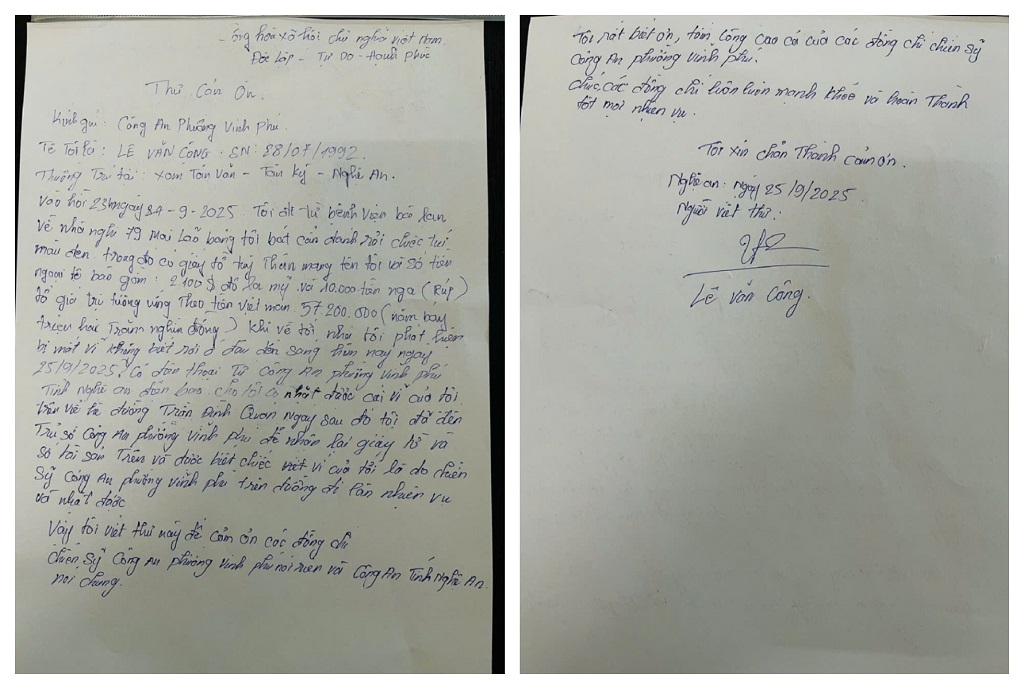 Cộng hoà xã hôi chủ nghĩa việt Nam
Độc Lập - Tự Do - Hạnh Phúc
Thư Cảm Ơn.
Kính gửi: Công An Phường Vinh Phú.
Tê Tôi là: LÊ VĂN CÔNG. SN: 88/07/1992.
Thường Trú tại: xóm Tân Vân - Tân Kỳ - Nghệ An.
Vào hồi 23h ngày 24-9-2025. Tôi đi từ bệnh viện ba lan
về nhà nghỉ 79 Mai Lão bạng tôi bất cẩn đánh rơi chiếc túi
màu đen. trong đó có giấy tờ tuỳ Thân mang tên tôi và số tiền
ngoại tê bao gồm: 2100$ đô la mỹ và 10.000 tiền nga (Rúp)
tổ giá trị tương ứng Theo tiền Việt man 57.200.000 (năm bảy
triệu hai Trăm nghìn đồng) Khi về tới nhà tôi phát hiện
bị mất ví không biết rơi ở đâu đến sang hôm nay ngay
25/9/2025. Có điên thoại Từ Công An phường vinh phú
Tỉnh Nghệ an điện báo cho tôi có nhặt được cái ví của tôi
trên vỉa hè đường Trần Đình Quan ngay sau đó tôi đã đến
Trụ sở Công An phường vinh phú để nhân lại giấy tờ và
số tài sản Trên và được biết chiếc ví của tôi là do chiến
Sỹ Công An phường vinh phú trên đường đi làn nhiện vụ
và nhặt được
Vậy tôi viết thư này để cảm ơn các đồng chí
chiến Sỹ Công An phường vinh phú nói riên và Công An Tỉnh Nghệ An
nói chung.
Tôi rất biết ơn, tấm lòng cao cả của các đồng chí chiến sỹ
Công An phường Vinh phú.
chúc các đồng chí luôn luôn mạnh khoẻ và hoàn Thành
tốt mọi nhiện vụ.
Tôi xin chân Thành cảm ơn.
Nghệ an: ngày 25/9/2025
Người viết thư:
Lê Văn Công.